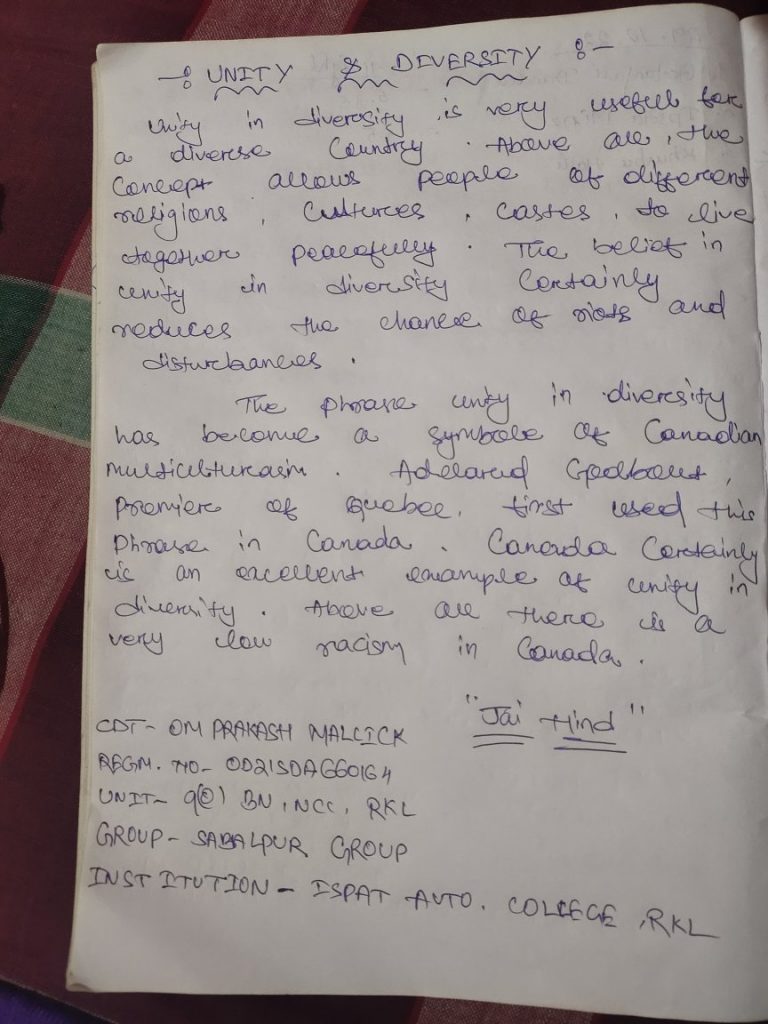 —: UNITY & DIVERSITY :—
Unity in diversity is very useful for
a diverse Country. Above all, the
Concept allows people of different
religions, Cultures, castes, to live
together peacefully. The belief in
unity in diversity Certainly
reduces the chance of riots and
disturbances.
The phrase unity in diversity
has become a symbole of Canadian
multiculturasim. Adelard Godbout,
Premier of Quebec, first used this
Phrase in Canada. Canada Certainly
is an excellent example of unity in
diversity. Above all there is a
very low racism in Canada.
"Jai Hind"
CDT- OM PRAKASH MALLICK
REGM. NO- OD21SDA660164
UNIT- 9(O) BN, NCC, RKL
GROUP- SABALPUR GROUP
INSTITUTION - ISPAT AUTO. COLLEGE, RKL